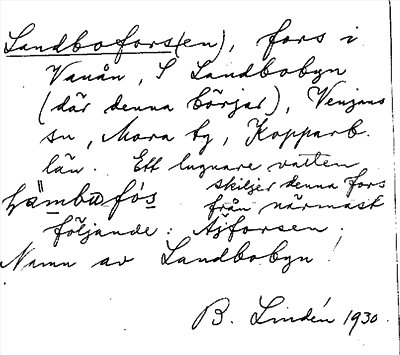 Landbofors(en), fors i
Vanån, S Landbobyn
(där denna börjar), Venjans
sn, Mora tg, Kopparb.
län. Ett lugnare vatten
skiljer denna fors
från närmast
följande: Ajforsen.
Namn av Landbobyn!
B. Lindén 1930.